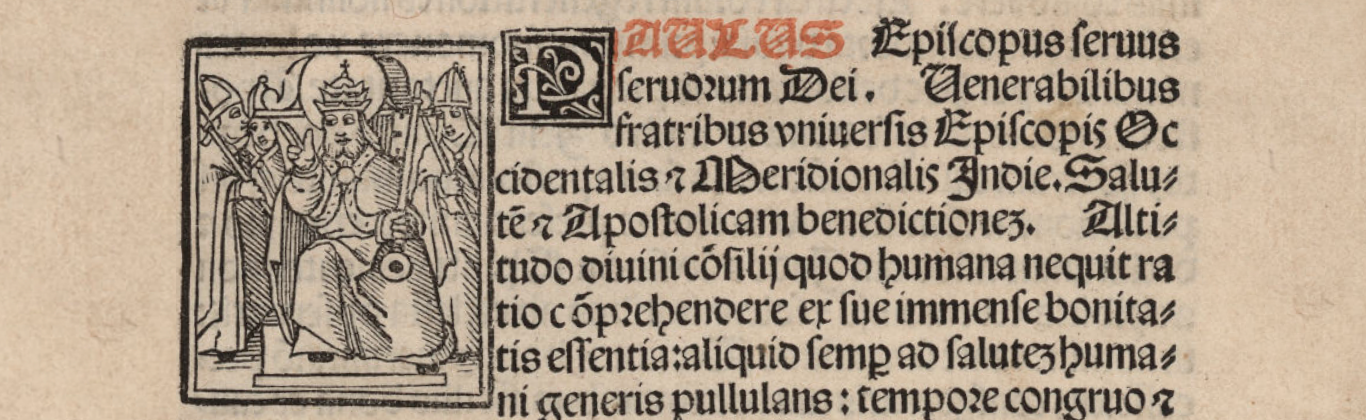 PAULUS Epiſcopus ſeruus
ſeruorum Dei. Uenerabilibus
fratribus vniuerſis Epiſcopis Oc
cidentalis ⁊ Meridionalis Indie. Salu⸗
tē ⁊ Apoſtolicam benedictionez. Alti⸗
tudo diuini cōſilij quod humana nequit ra
tio cōprehendere ex ſue immenſe bonita⸗
tis eſſentia: aliquid ſemꝑ ad ſalutez huma⸗
ni generis pullulans: tempore congruo ⁊